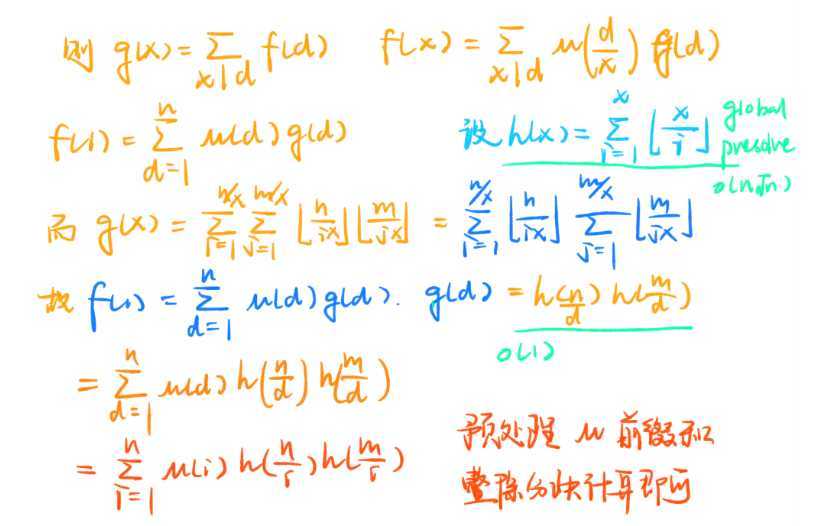 则 g(x) = ∑_{x|d} f(d)    f(x) = ∑_{x|d} μ(d/x) g(d)
f(1) = ∑_{d=1}^{n} μ(d) g(d)    设 h(x) = ∑_{i=1}^{x} ⌊x/i⌋ global
presolve
O(n√n)
而 g(x) = ∑_{i=1}^{n/x} ∑_{j=1}^{m/x} ⌊n/ix⌋ ⌊m/jx⌋ = ∑_{i=1}^{n/x} ⌊n/ix⌋ ∑_{j=1}^{m/x} ⌊m/jx⌋
故 f(1) = ∑_{d=1}^{n} μ(d) g(d). g(d) = h(n/d) h(m/d)
O(1)
= ∑_{d=1}^{n} μ(d) h(n/d) h(m/d)
= ∑_{i=1}^{n} μ(i) h(n/i) h(m/i)
预处理 μ 前缀和
整除分块计算即可